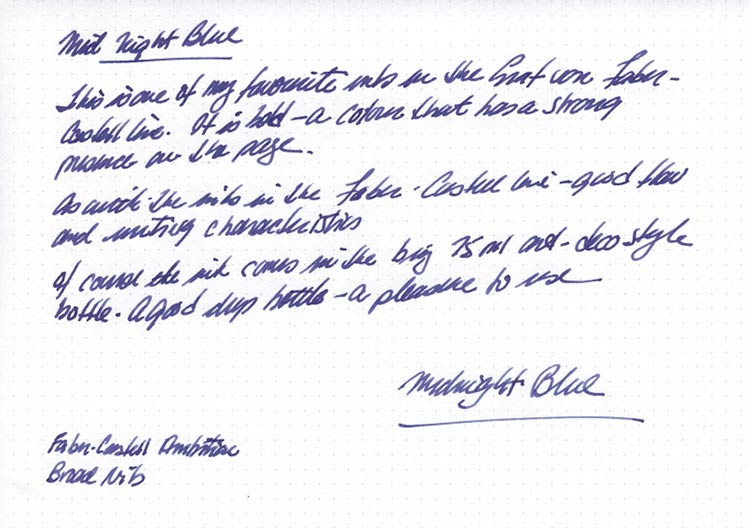 Mid Night Blue
This is one of my favourite inks in the Graf von Faber-
Castell line. It is bold – a colour that has a strong
presence on the page.
As with the inks in the Faber-Castell line – good flow
and writing characteristics
of course the ink comes in the big 75 ml art-deco style
bottle. A good deep bottle – a pleasure to use
Midnight Blue
Faber-Castell Ambition
Broad Nib